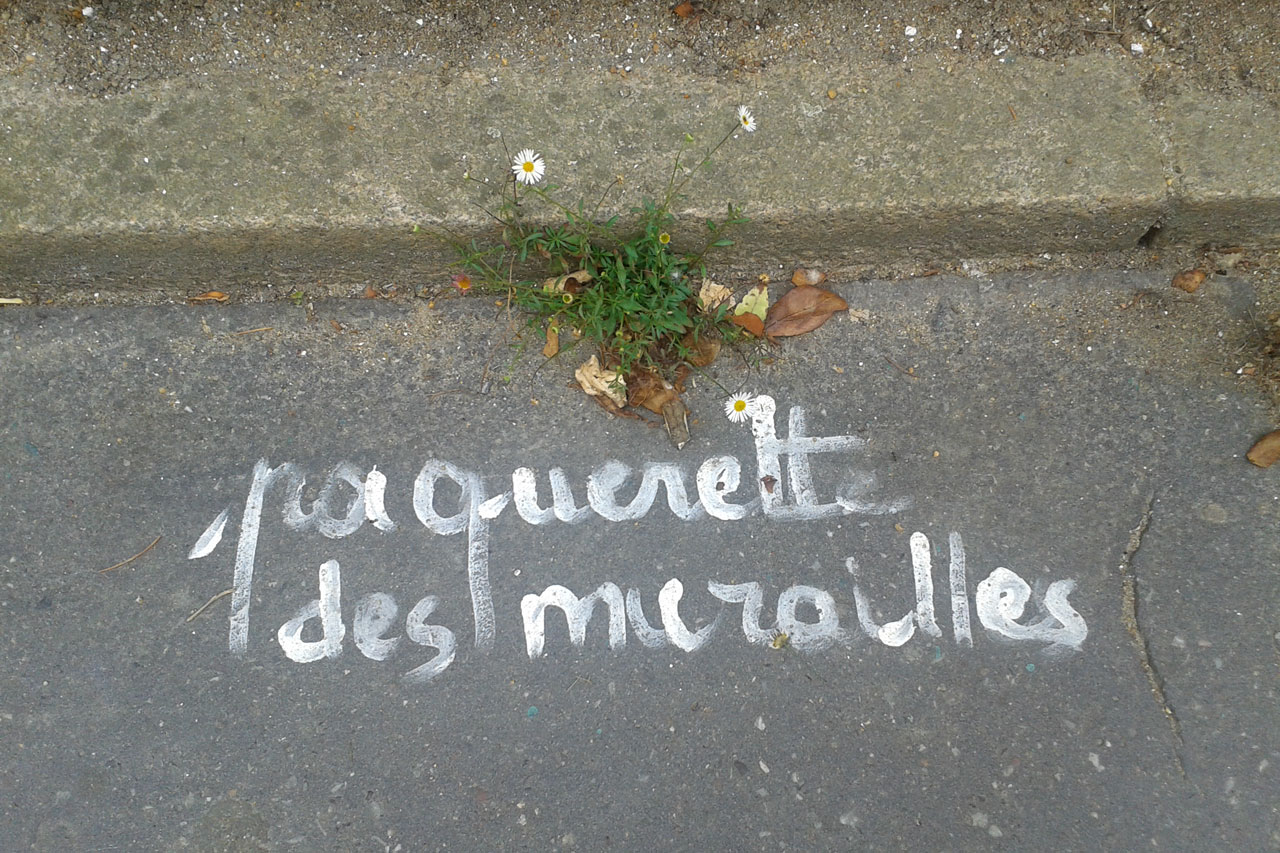 paquerette
des murailles